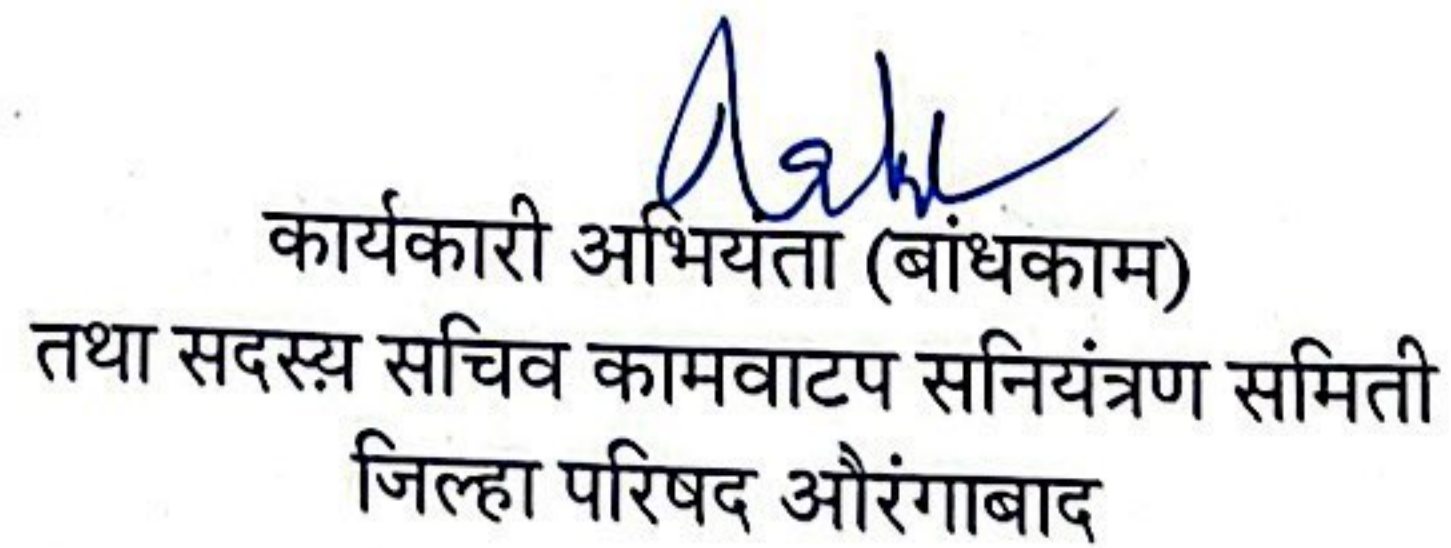 कार्यकारी अभियंता (बांधकाम)
तथा सदस्य़ सचिव कामवाटप सनियंत्रण समिती
जिल्हा परिषद औरंगाबाद